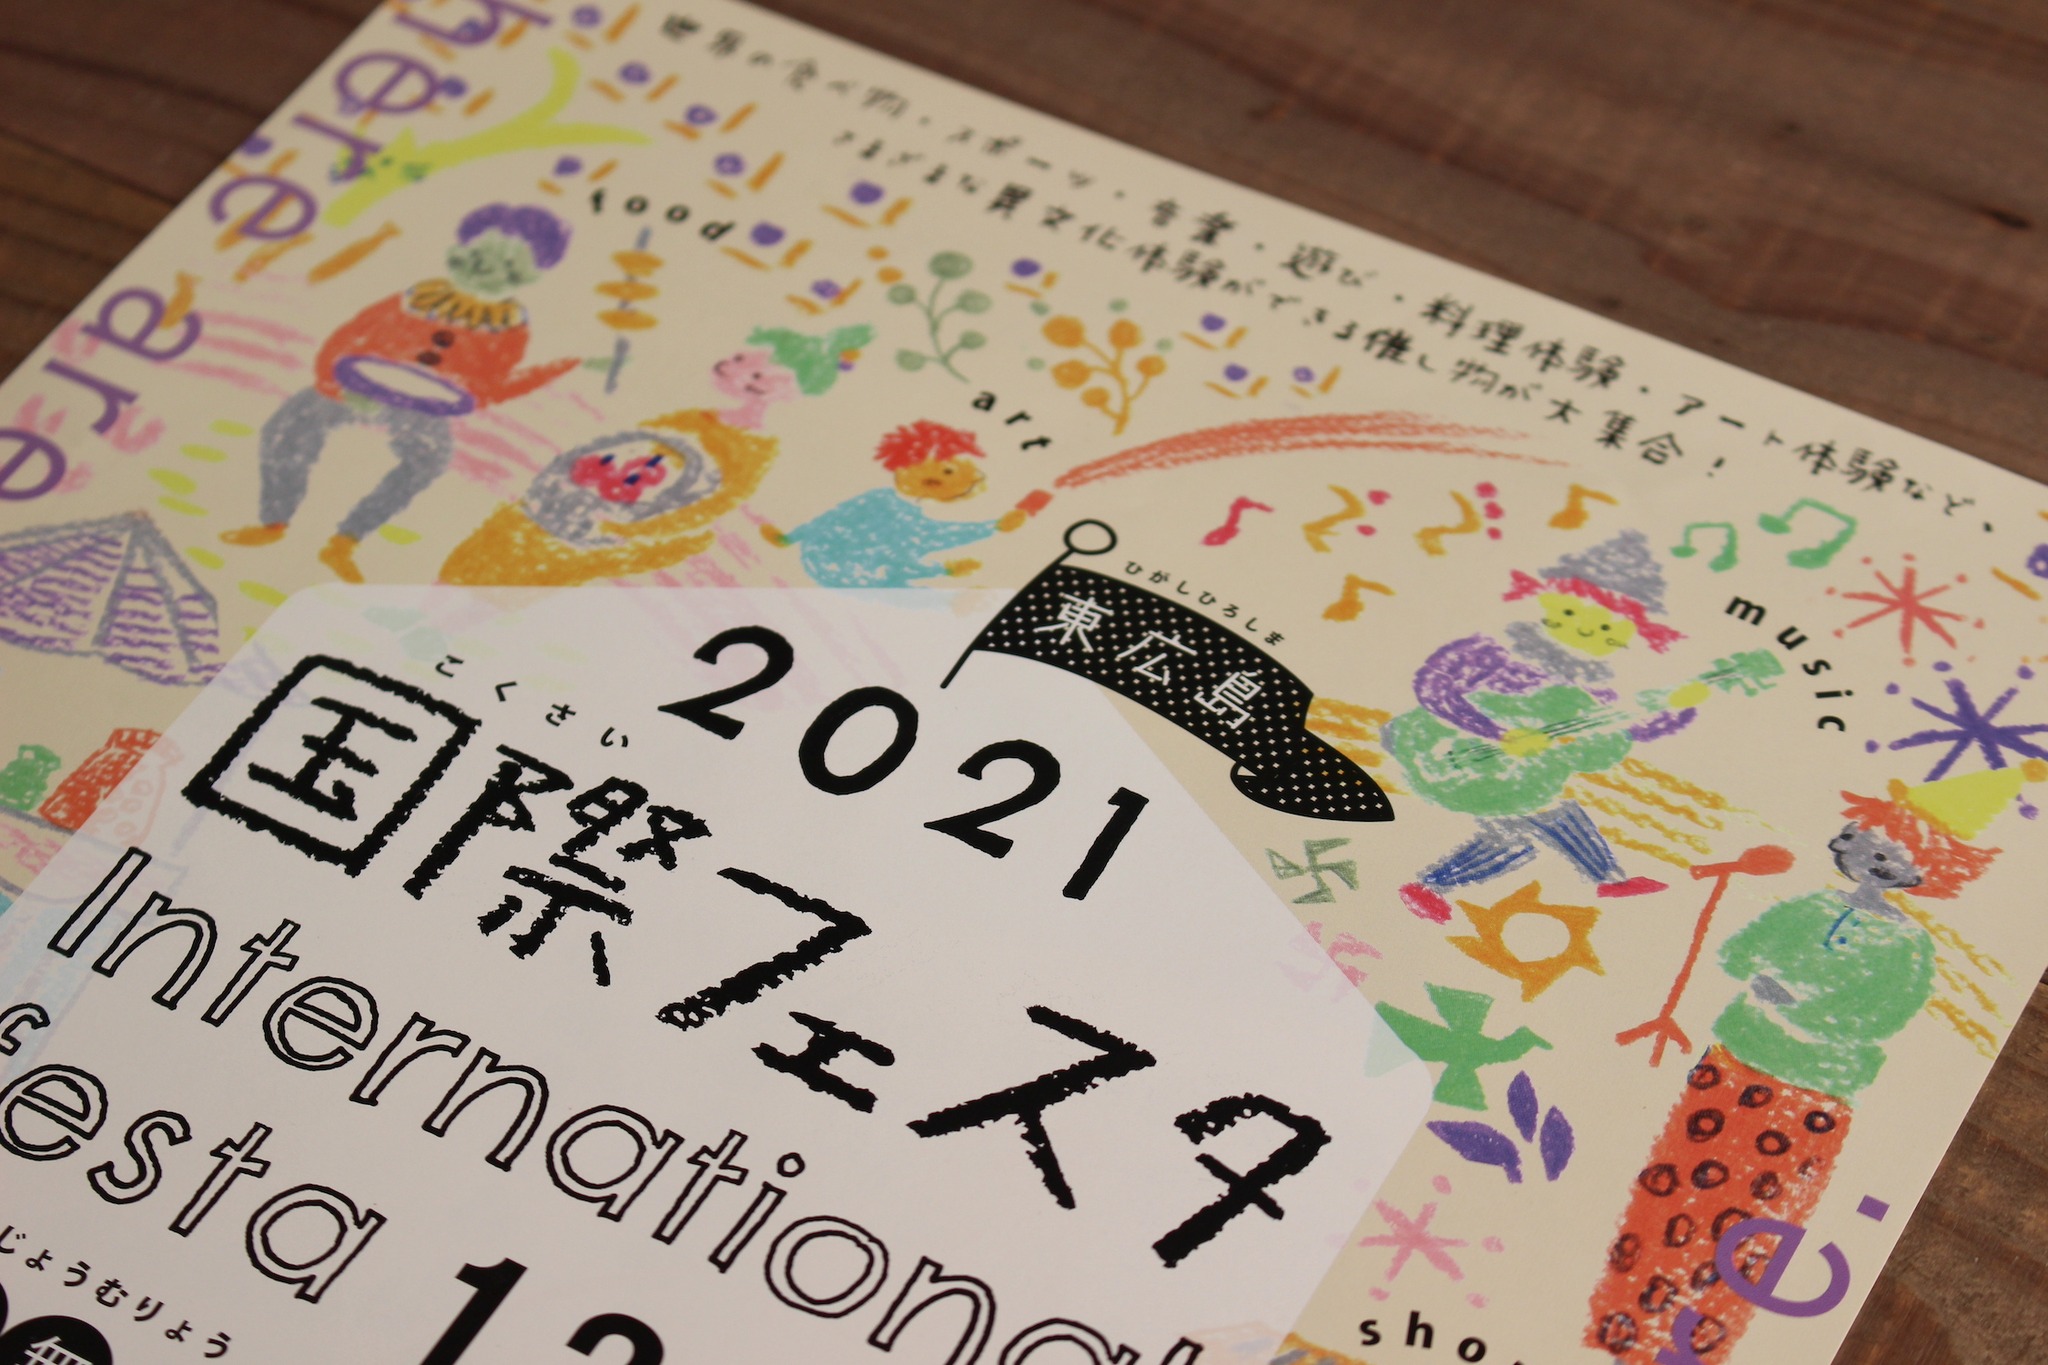 世界の食べ物・スポーツ・音楽・遊び・料理体験・アート体験など、
さまざまな異文化体験ができる催し物が大集合!
food
art
music
ひがしひろしま
東広島
2021
こくさい
国際フェスタ
International
Festa
じょうむりょう
無
12
are